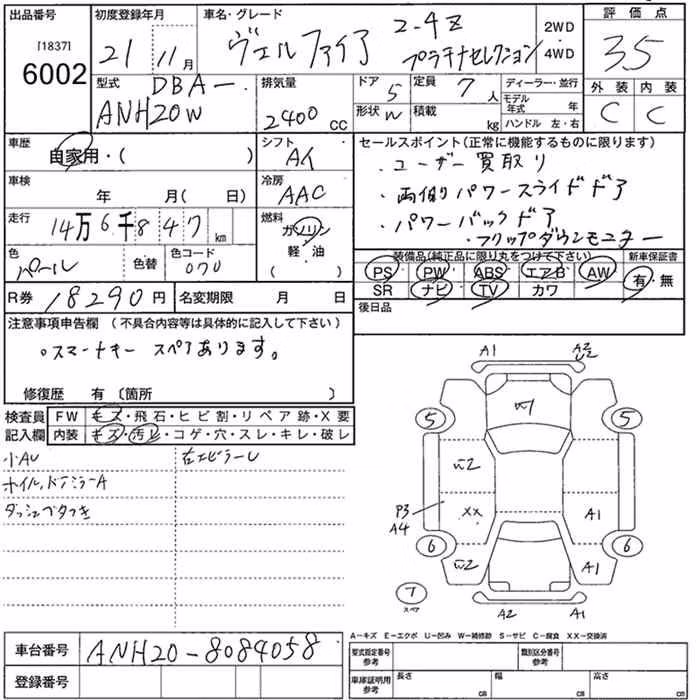 出品番号 初度登録年月 車名・グレード 2WD・4WD 評価点
[1837]
6002
21 11月 ヴェルファイア 2.4Z
プラチナセレクション
3.5
型式 DBA-
ANH20W
排気量
2400 CC
ドア 5 定員 7人 ディーラー・並行
形状 W 積載 kg モデル年式 年
ハンドル 左・右
外装 内装
C C
車歴 自家用・( ) シフト AT
セールスポイント(正常に機能するものに限ります)
・ユーザー買取り
・両側パワースライドドア
・パワーバックドア
・フリップダウンモニター
車検 年 月( 日) 冷房 AAC
走行 14万6千847km 燃料 ガソリン
軽・油
色 パール 色替 色コード 070
装備品(純正品に限り丸をつけて下さい) 新車保証書
PS PW ABS エアB AW 有・無
SR ナビ TV カワ
R券 18290円 名変期限 月 日
後日品
注意事項申告欄 (不具合内容等は具体的に記入して下さい)
。スマートキー スペアあります。
修復歴 有 〔箇所 〕
検査員 FW キズ・飛石・ヒビ割・リペア跡・X要
記入欄 内装 キズ・汚レ・コゲ・穴・スレ・キレ・破レ
小AU
ホイル,ドアミラーA
A1 A2 U2
W1
5 5
W2
P3 A4 XX A1
6 6
W2 A1
7
スペア
A2 A1
A-キズ E-エクボ U-凹み W-補修跡 S-サビ C-腐食 XX-交換済
車台番号 ANH20-8084058
登録番号
型式指定番号 参考 類別区分番号 参考
車庫証明用 参考 長さ cm 幅 cm 高さ cm